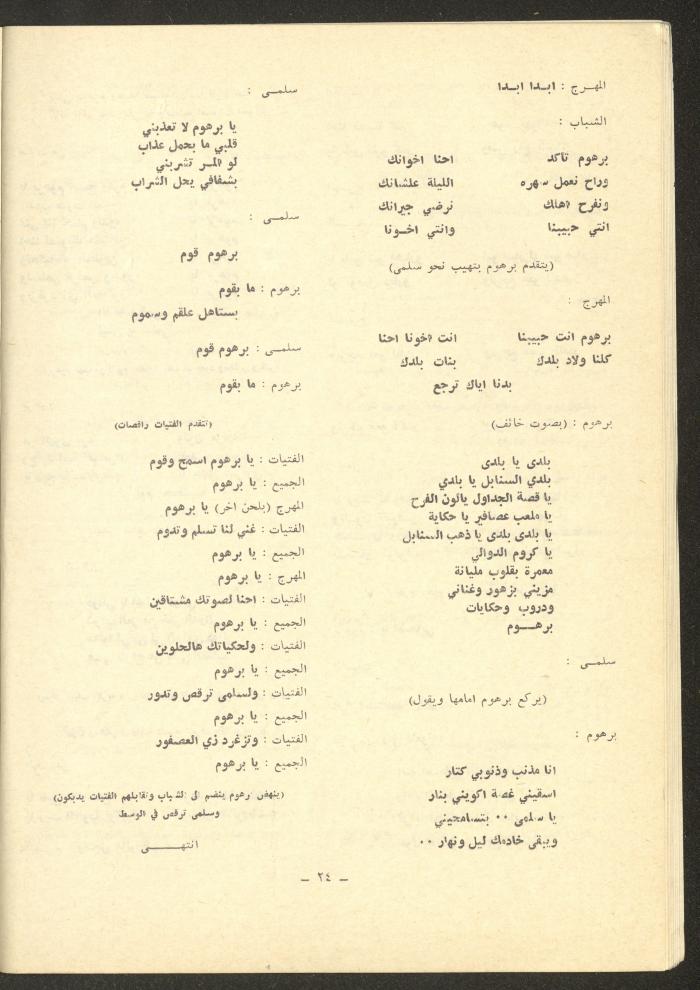 المهرج : ابدا ابدا
الشباب :
برهوم تأكد احنا اخوانك
وراح نعمل سهره الليلة علشانك
ونفرح أهلك نرضي جيرانك
انتي حبيبنا وانتي اخونا
(يتقدم برهوم بتهيب نحو سلمى)
المهرج :
برهوم انت حبيبنا انت أخونا احنا
كلنا ولاد بلدك بنات بلدك
بدنا اياك ترجع
برهوم : (بصوت خائف)
بلدى يا بلدى
بلدي السنابل يا بلدي
يا قصة الجداول يالون الفرح
يا ملعب عصافير يا حكاية
يا بلدى بلدى يا ذهب السنابل
يا كروم الدوالي
معمرة بقلوب مليانة
مزيني بزهور وغناني
ودروب وحكايات
برهوم
سلمى :
(يركع برهوم امامها ويقول)
برهوم :
انا مذنب وذنوبي كتار
اسقيني غصة اكويني بنار
يا سلمى ٠٠ بتسامحيني
ويبقى خادمك ليل ونهار ٠٠
سلمى :
يا برهوم لا تعذبني
قلبي ما بحمل عذاب
لو المر تشربني
بشفافي يحل الشراب
سلمى :
برهوم قوم
برهوم : ما بقوم
بستاهل علقم وسموم
سلمى : برهوم قوم
برهوم : ما بقوم
(تتقدم الفتيات راقصات)
الفتيات : يا برهوم اسمح وقوم
الجميع : يا برهوم
المهرج (بلحن اخر) يا برهوم
الفتيات : غني لنا تسلم وتدوم
الجميع : يا برهوم
المهرج : يا برهوم
الفتيات : احنا لصوتك مشتاقين
الجميع : يا برهوم
الفتيات : ولحكياتك هالحلوين
الجميع : يا برهوم
الفتيات : ولسلمى ترقص وتدور
الجميع : يا برهوم
الفتيات : وتزغرد زي العصفور
الجميع : يا برهوم
(ينهض برهوم ينضم الى الشباب وتقابلهم الفتيات يدبكون)
وسلمى ترقص في الوسط
انتهى
– ٢٤ –